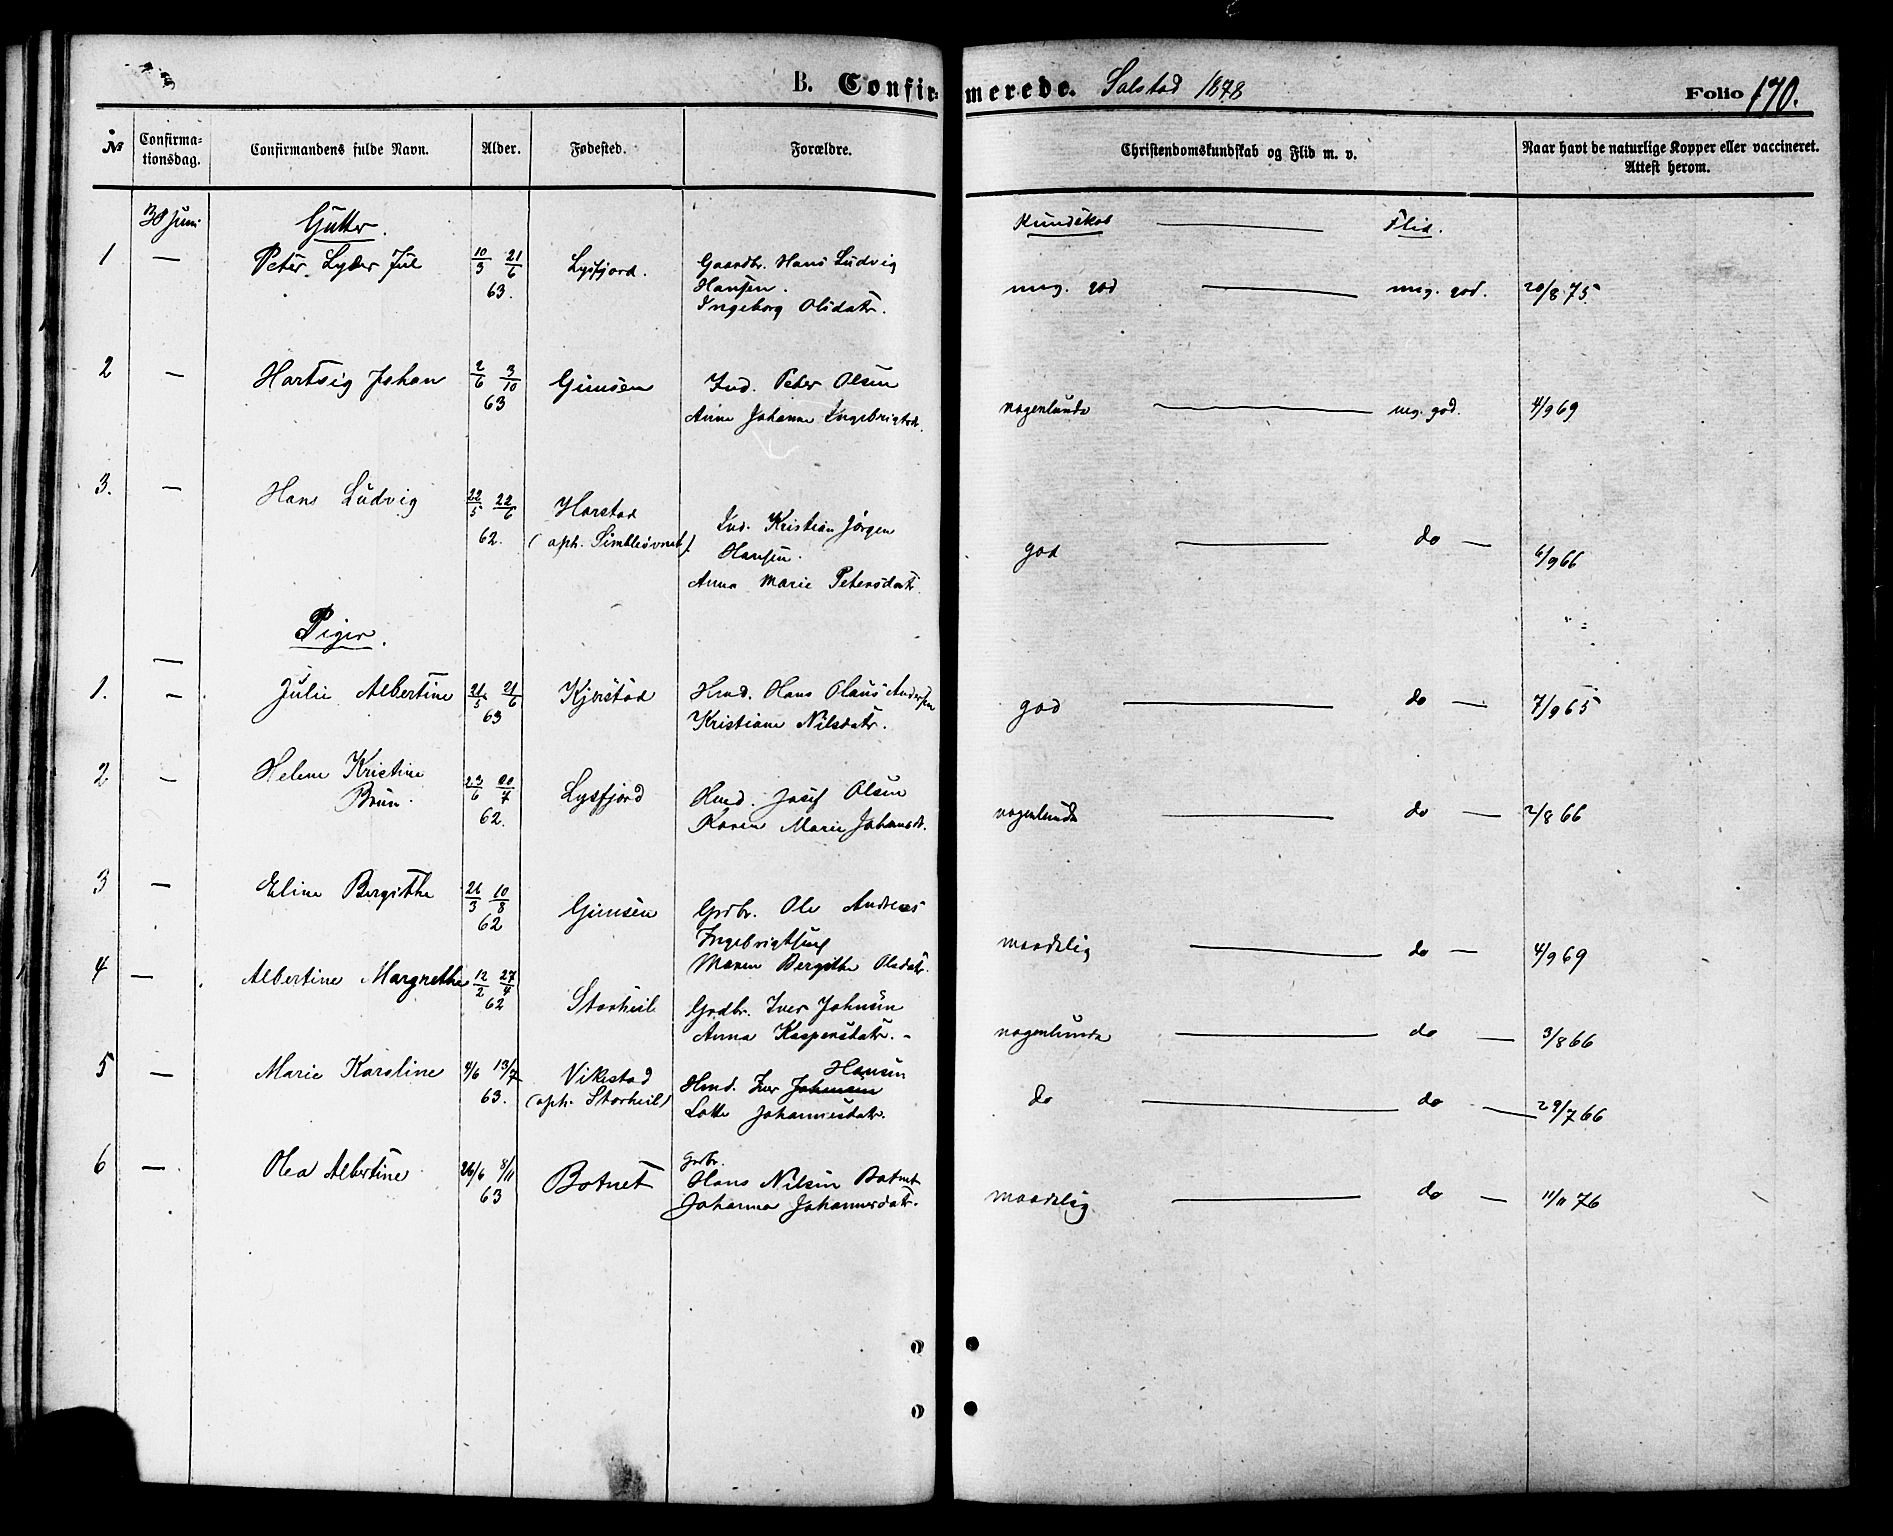 B. Confirmerede. Solstad 1878 Folio 170.
№ Confirma-tionsdag. Confirmandens fulde Navn. Alder. Fødested. Forældre. Christendomskundskab og Flid m. v. Naar havt de naturlige Kopper eller vaccineret. Attest herom.
30 Juni Gutter. Kundskab — Flid.
1 — Peter Lyder Jul 10/3 21/6 63. Lysfjord. Gaardbr. Hans Ludvig
Hansen. meg. god — meg. god. 20/8 75
Ingeborg Olsdatr.
2 — Hartvig Johan 2/6 3/10 63 Gimsen Ind. Peter Olsen
Anne Johanna Ingebrigtsd. nogenlunde — meg. god. 4/9 69
3. — Hans Ludvig 22/5 22/6 62. Horstad
(oph. Simblesövnet). Ind. Kristian Jörgen
Hansen. god — do — 6/9 66
Anna Marie Petersdatr.
Piger. " =
—
1. — Julie Albertine 21/5 21/6 63 Kjerstad Hmd. Hans Olaus Andersen
Kristiane Nilsdatr. god — do — 7/9 65
2 — Helene Kristine
Brun. 23/6 20/7 62. Lysfjord Hmd. Josef Olsen
Karen Marie Johansd. nogenlunde — do — 2/8 66
3 — Eline Bergitthe 26/3 10/8 62 Gimsen Grdbr. Ole Andreas
Ingebrigtsen
Maren Bergitha Olsdatr. maadelig — do — 4/9 69
4 — Albertine Margrethe 12/2 27/4 62 Storheil Grdbr. Iver Johnsen
Anna Kaspersdatr. - nogenlunde — do — 3/8 66
5 — Marie Karoline 4/6 13/7 63. Vikestad
(oph. Storheil) Hansen
Hmd. Iver Johnsen
Lotte Johannesdatr. do — do — 29/7 66
6 — Olea Albertine 26/6 8/11 63 Botnet Grdbr.
Hans Nilsen Botnet
Johanna Johannesdatr. maadelig — do — 11/11 76